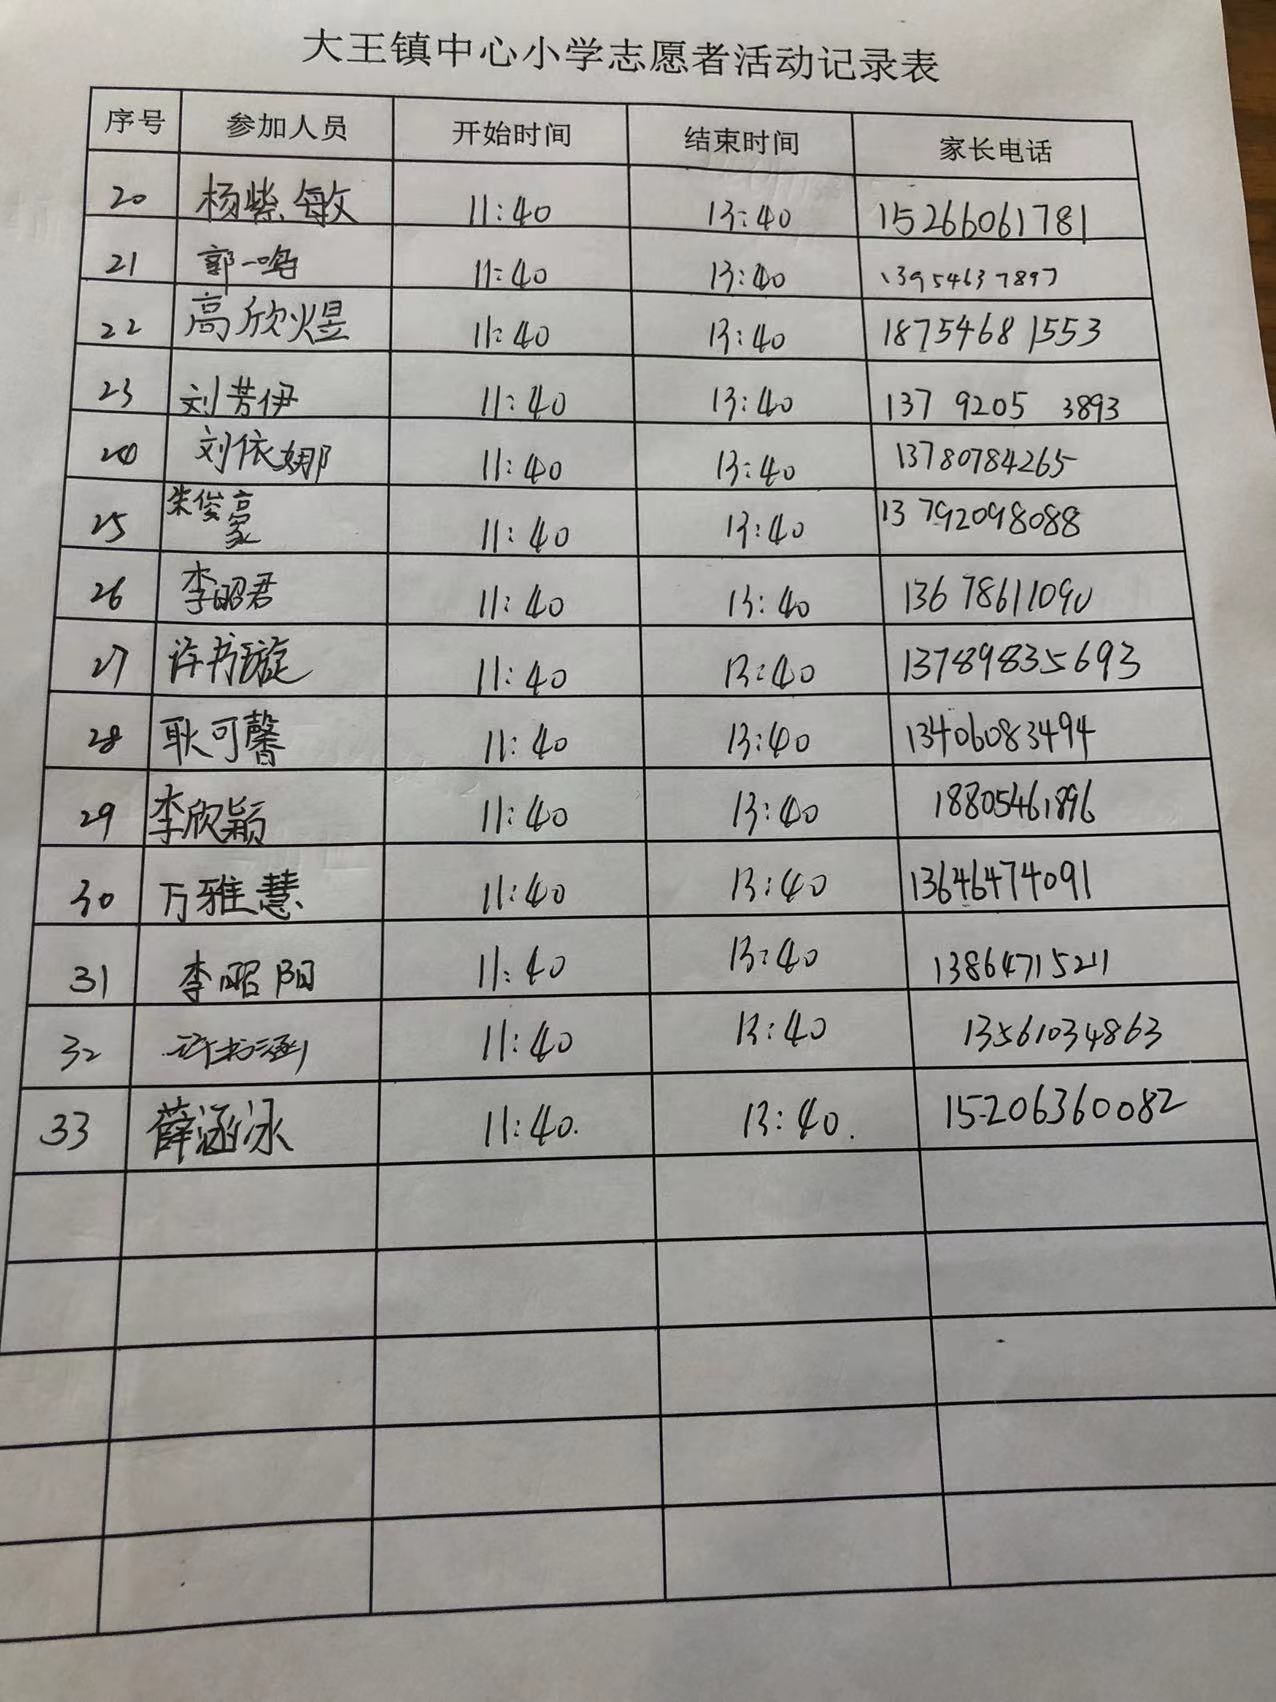 大王镇中心小学志愿者活动记录表
序号 参加人员 开始时间 结束时间 家长电话
20 杨紫敏 11:40 13:40 15266061781
21 郭一鸣 11:40 13:40 13954637897
22 高欣煜 11:40 13:40 18754681553
23 刘芳伊 11:40 13:40 137 9205 3893
24 刘依娜 11:40 13:40 13780784265
25 朱俊豪 11:40 13:40 13792098088
26 李昭君 11:40 13:40 13678611090
27 许书璇 11:40 13:40 13789835693
28 耿可馨 11:40 13:40 13406083494
29 李欣颖 11:40 13:40 18805461896
30 万雅慧 11:40 13:40 13646474091
31 李昭阳 11:40 13:40 13864715211
32 许书涵 11:40 13:40 13561034863
33 薛涵泳 11:40. 13:40. 15206360082